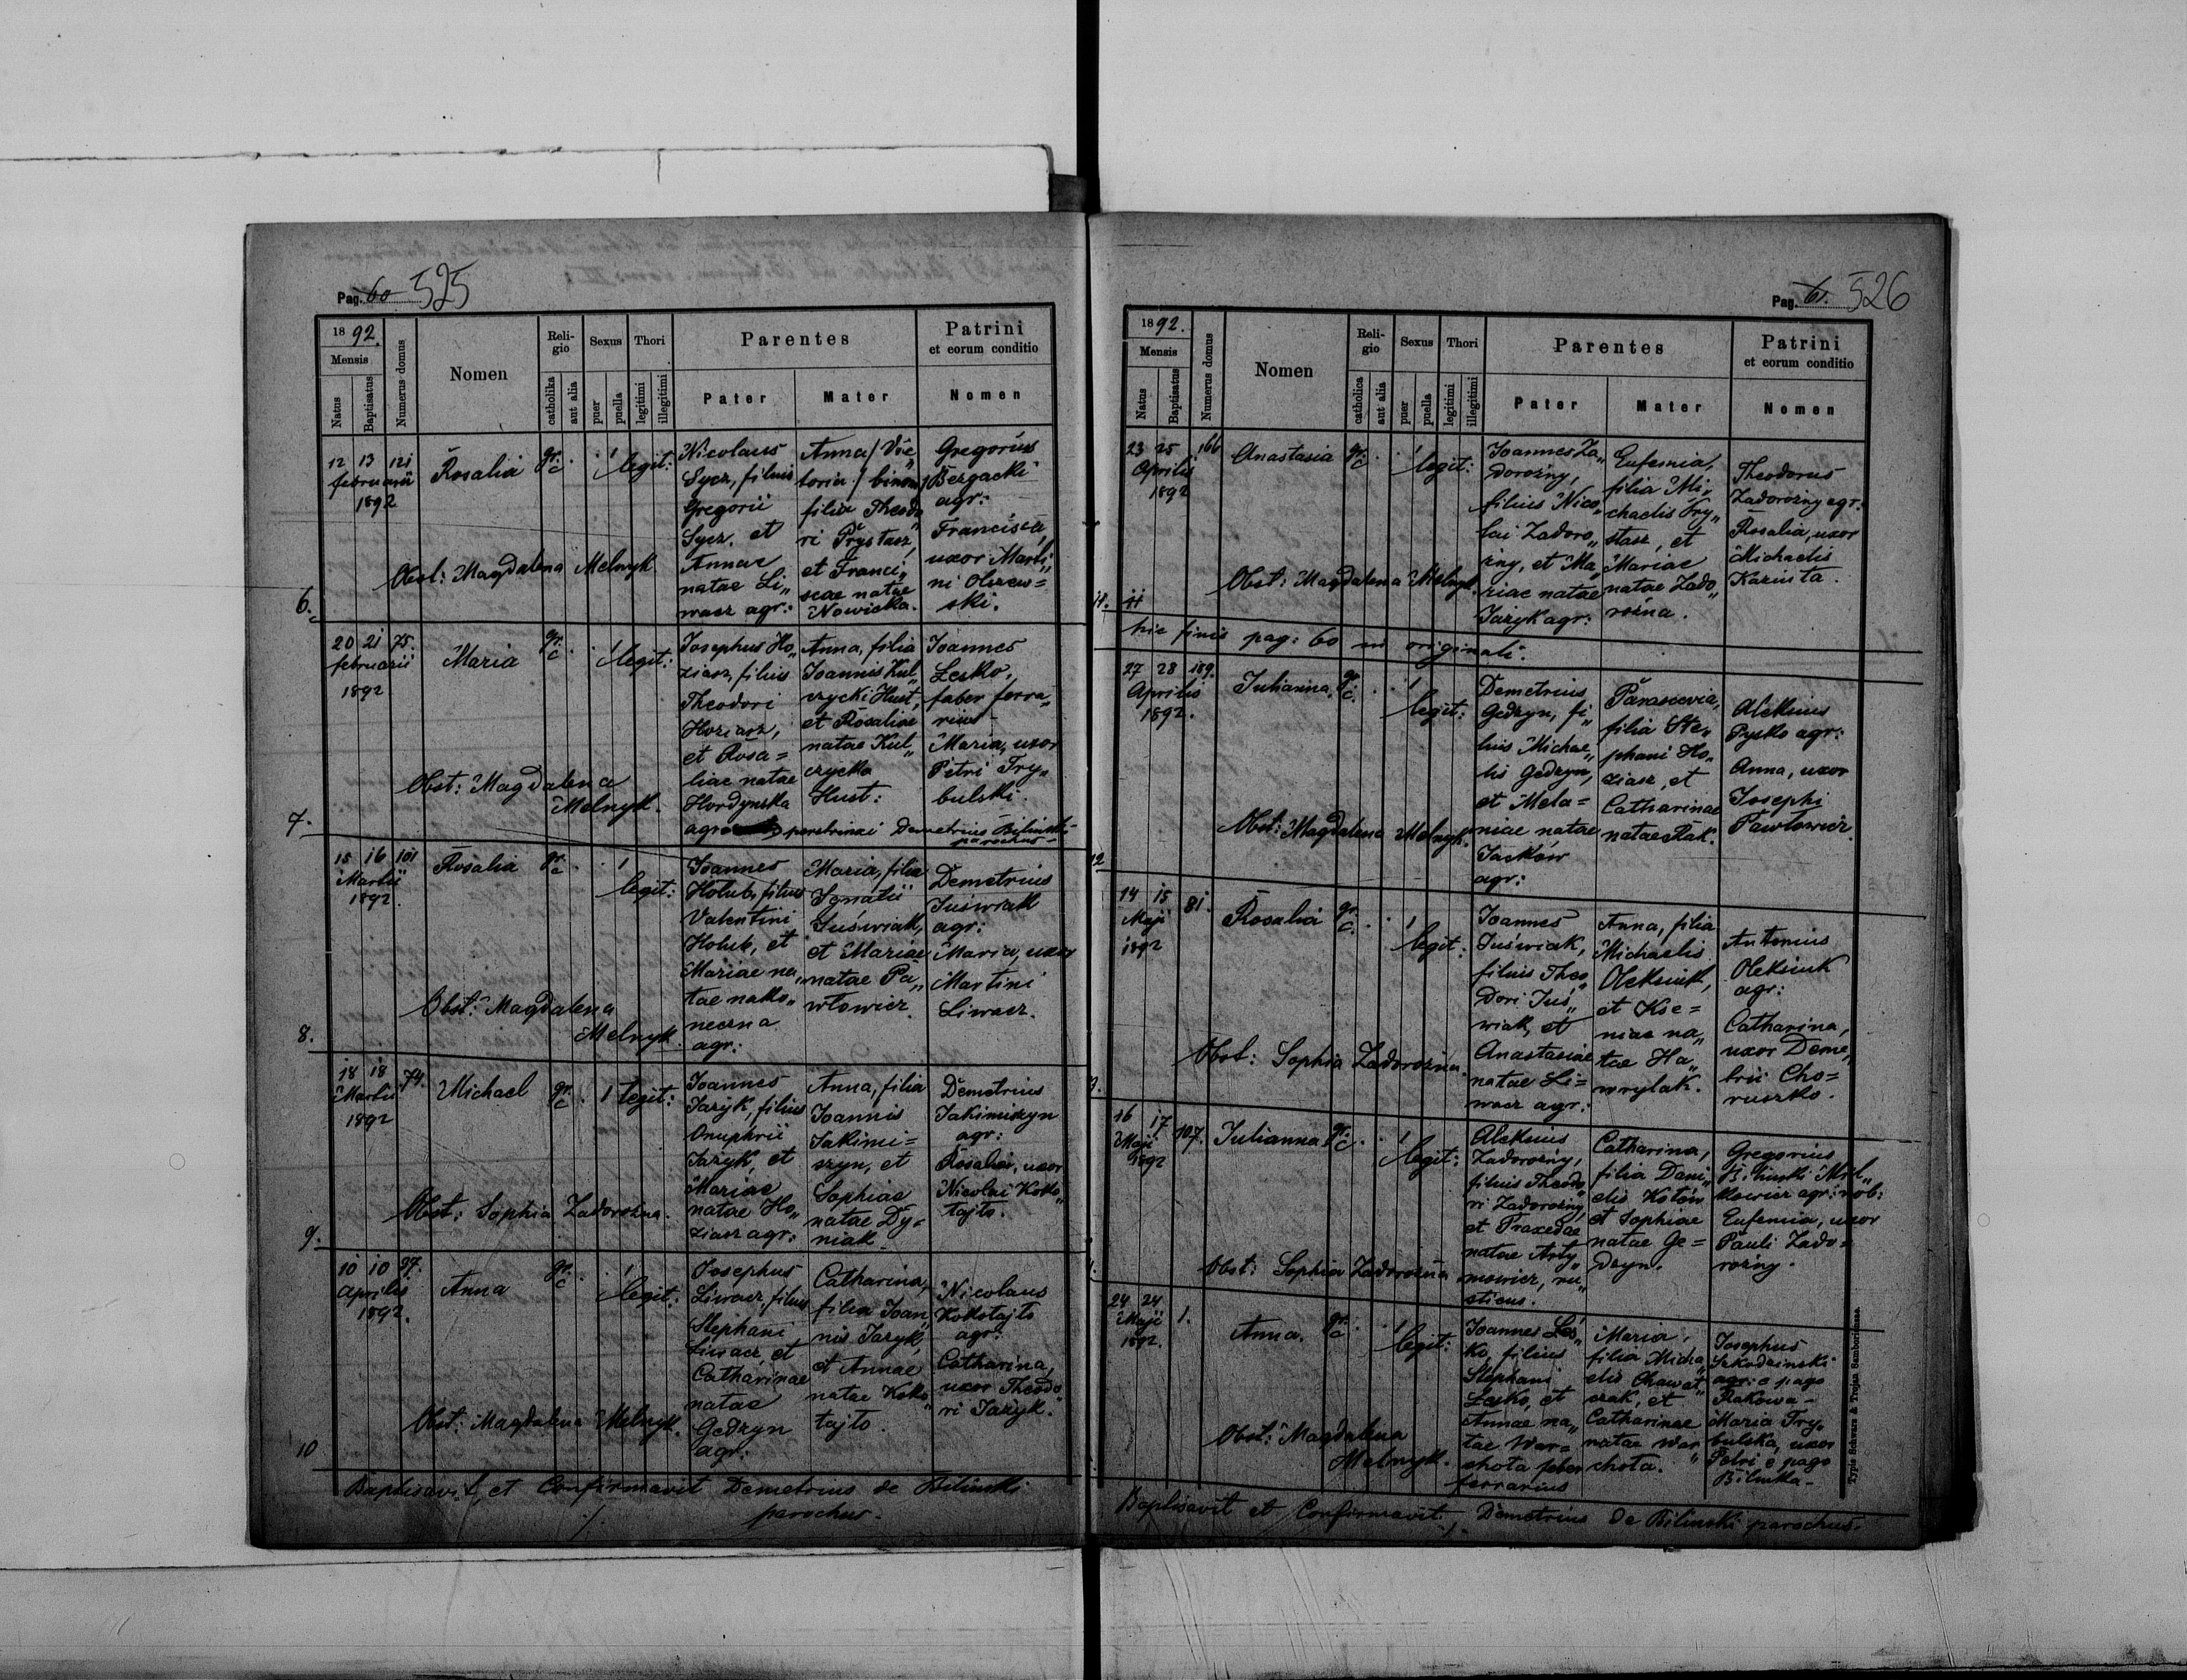 Pag. 60 525
1892.
Mensis
Natus
Baptisatus
Numerus domus
Nomen
Religio
catholika
aut alia
Sexus
puer
puella
Thori
legitimi
illegitimi
Parentes
Pater
Mater
Patrini
et eorum conditio
Nomen
6.
12 13 121
februarii
1892
Rosalia
gr. c
1
legit:
Nicolaus
Sycz, filius
Gregorii
Sycz, et
Annae
natae Li„
wacz agr:
Anna / Vic„
toria / binom
filia Theodo„
ri Prystasz,
et Franci„
scae natae
Nowicka.
Gregorius
Bezgacki
agr:
Francisca,
uxor Marti„
ni Olszew=
ski.
Obst: Magdalena Melnyk.
7.
20 21 75.
februarii
1892
Maria
gr. c
1
legit:
Josephus Ho„
ziasz, filius
Theodori
Hoziasz,
et Rosa=
liae natae
Hordynska
agr
Anna, filia
Joannis Kul„
czycki Hust,
et Rosaliae
natae Kul„
czycka
Hust:
Joannes
Lesko,
faber ferra„
rius -
Maria, uxor
Petri Try„
bulski.
Demetrius Bilinski
parochus -
Obst: Magdalena
Melnyk.
8.
15 16 101
Martii
1892.
Rosalia
gr. c
1
legit:
Joannes
Holub, filius
Valentini
Holub, et
Mariae na„
tae nako„
neczna
agr:
Maria, filia
Ignatii
Juświak,
et Mariae
natae Pa„
włowicz.
Demetrius
Juświak
agr:
Maria, uxor
Martini
Liwacz.
Obst: Magdalena
Melnyk.
9.
18 18 74.
Martii
1892
Michael
gr. c
1 legit:
Joannes
Jazyk, filius
Onuphrii
Jazyk, et
Mariae
natae Ho„
ziasz agr:
Anna, filia
Joannis
Jakimi=
szyn, et
Sophiae
natae Dy=
niak
Demetrius
Jakimiszyn
agr:
Rosalia, uxor
Nicolai Koko„
tajto.
Obst: Sophia Zadorozna.
10
10 10 97.
Aprilis
1892.
Anna
gr. c
1
legit:
Josephus
Liwacz, filius
Stephani
Liwacz, et
Catharinae
natae
Gedzyn
agr:
Catharina,
filia Joan„
nis Jazyk,
et Annae
natae Koko„
tajto.
Nicolaus
Kokotajto
agr:
Catharina,
uxor Theodo„
ri Jazyk.
Obst: Magdalena Melnyk.
Baptisavit, et Confirmavit Demetrius de Bilinski
parochus.
Pag. 61. 526
1892.
Mensis
Natus
Baptisatus
Numerus domus
Nomen
Religio
catholica
aut alia
Sexus
puer
puella
Thori
legitimi
illegitimi
Parentes
Pater
Mater
Patrini
et eorum conditio
Nomen
11.
23 25 166
Aprilis
1892
Anastasia
gr. c
legit:
Joannes Za„
dorozny,
filius Nico„
lai Zadoro„
zny, et Ma„
riae natae
Jazyk agr:
Eufemia,
filia Mi„
chaelis Pry„
stasz, et
Mariae
natae Zado„
rożna.
Theodorus
Zadorozny agr:
Rosalia, uxor
Michaelis
Kazinta.
Obst: Magdalena Melnyk.
hic finis pag: 60 in originali.
12
27 28 189.
Aprilis
1892.
Julianna
gr. c
1
legit:
Demetrius
Gedzyn, fi„
lius Michae„
lis Gedzyn,
et Mela=
niae natae
Jacków
agr:
Parascevia,
filia Ste„
phani Ho„
ziasz, et
Catharinae
natae Rak.
Aleksius
Pysko agr:
Anna, uxor
Josephi
Pawłowicz.
Obst: Magdalena Melnyk.
14 15 81.
Maji
1892
Rosalia
gr. c.
1
legit:
Joannes
Juświak,
filius Theo„
dori Juś„
wiak, et
Anastasiae
natae Li=
wacz agr:
Anna, filia
Michaelis
Oleksiuk,
et Kse=
niae na„
tae Ha„
wrylak.
Antonius
Oleksiuk
agr:
Catharina,
uxor Deme„
trii Cho=
ruszko.
Obst: Sophia Zadorozna.
16 17 107.
Maji
1892
Julianna
gr. c
1
legit:
Aleksius
Zadorozny,
filius Theodo„
ri Zadorozny,
et Praxedae
natae Arty„
mowicz, ru„
sticus.
Catharina,
filia Dani„
elis Kotów
et Sophiae
natae Ge=
dzyn.
Gregorius
Bilinski
agr: nob:
Eufemia, uxor
Pauli Zado=
rożny.
Obst: Sophia Zadorozna
24 24 1.
Maji
1892.
Anna.
gr. c
1
legit:
Joannes Les„
ko, filius
Stephani
Lesko, et
Annae na„
tae War=
chota faber
ferrarius
Maria,
filia Micha„
elis Chawat„
czak, et
Catharinae
natae War„
chota.
Josephus
Szkodzinski
agr: e pago
Rakowa -
Maria Try„
bulska, uxor
Petri e pago
Bilinka -
Obst: Magdalena
Melnyk.
Baptisavit et Confirmavit Demetrius de Bilinski parochus.
Typis Schwarz & Trojan Samboriensae.